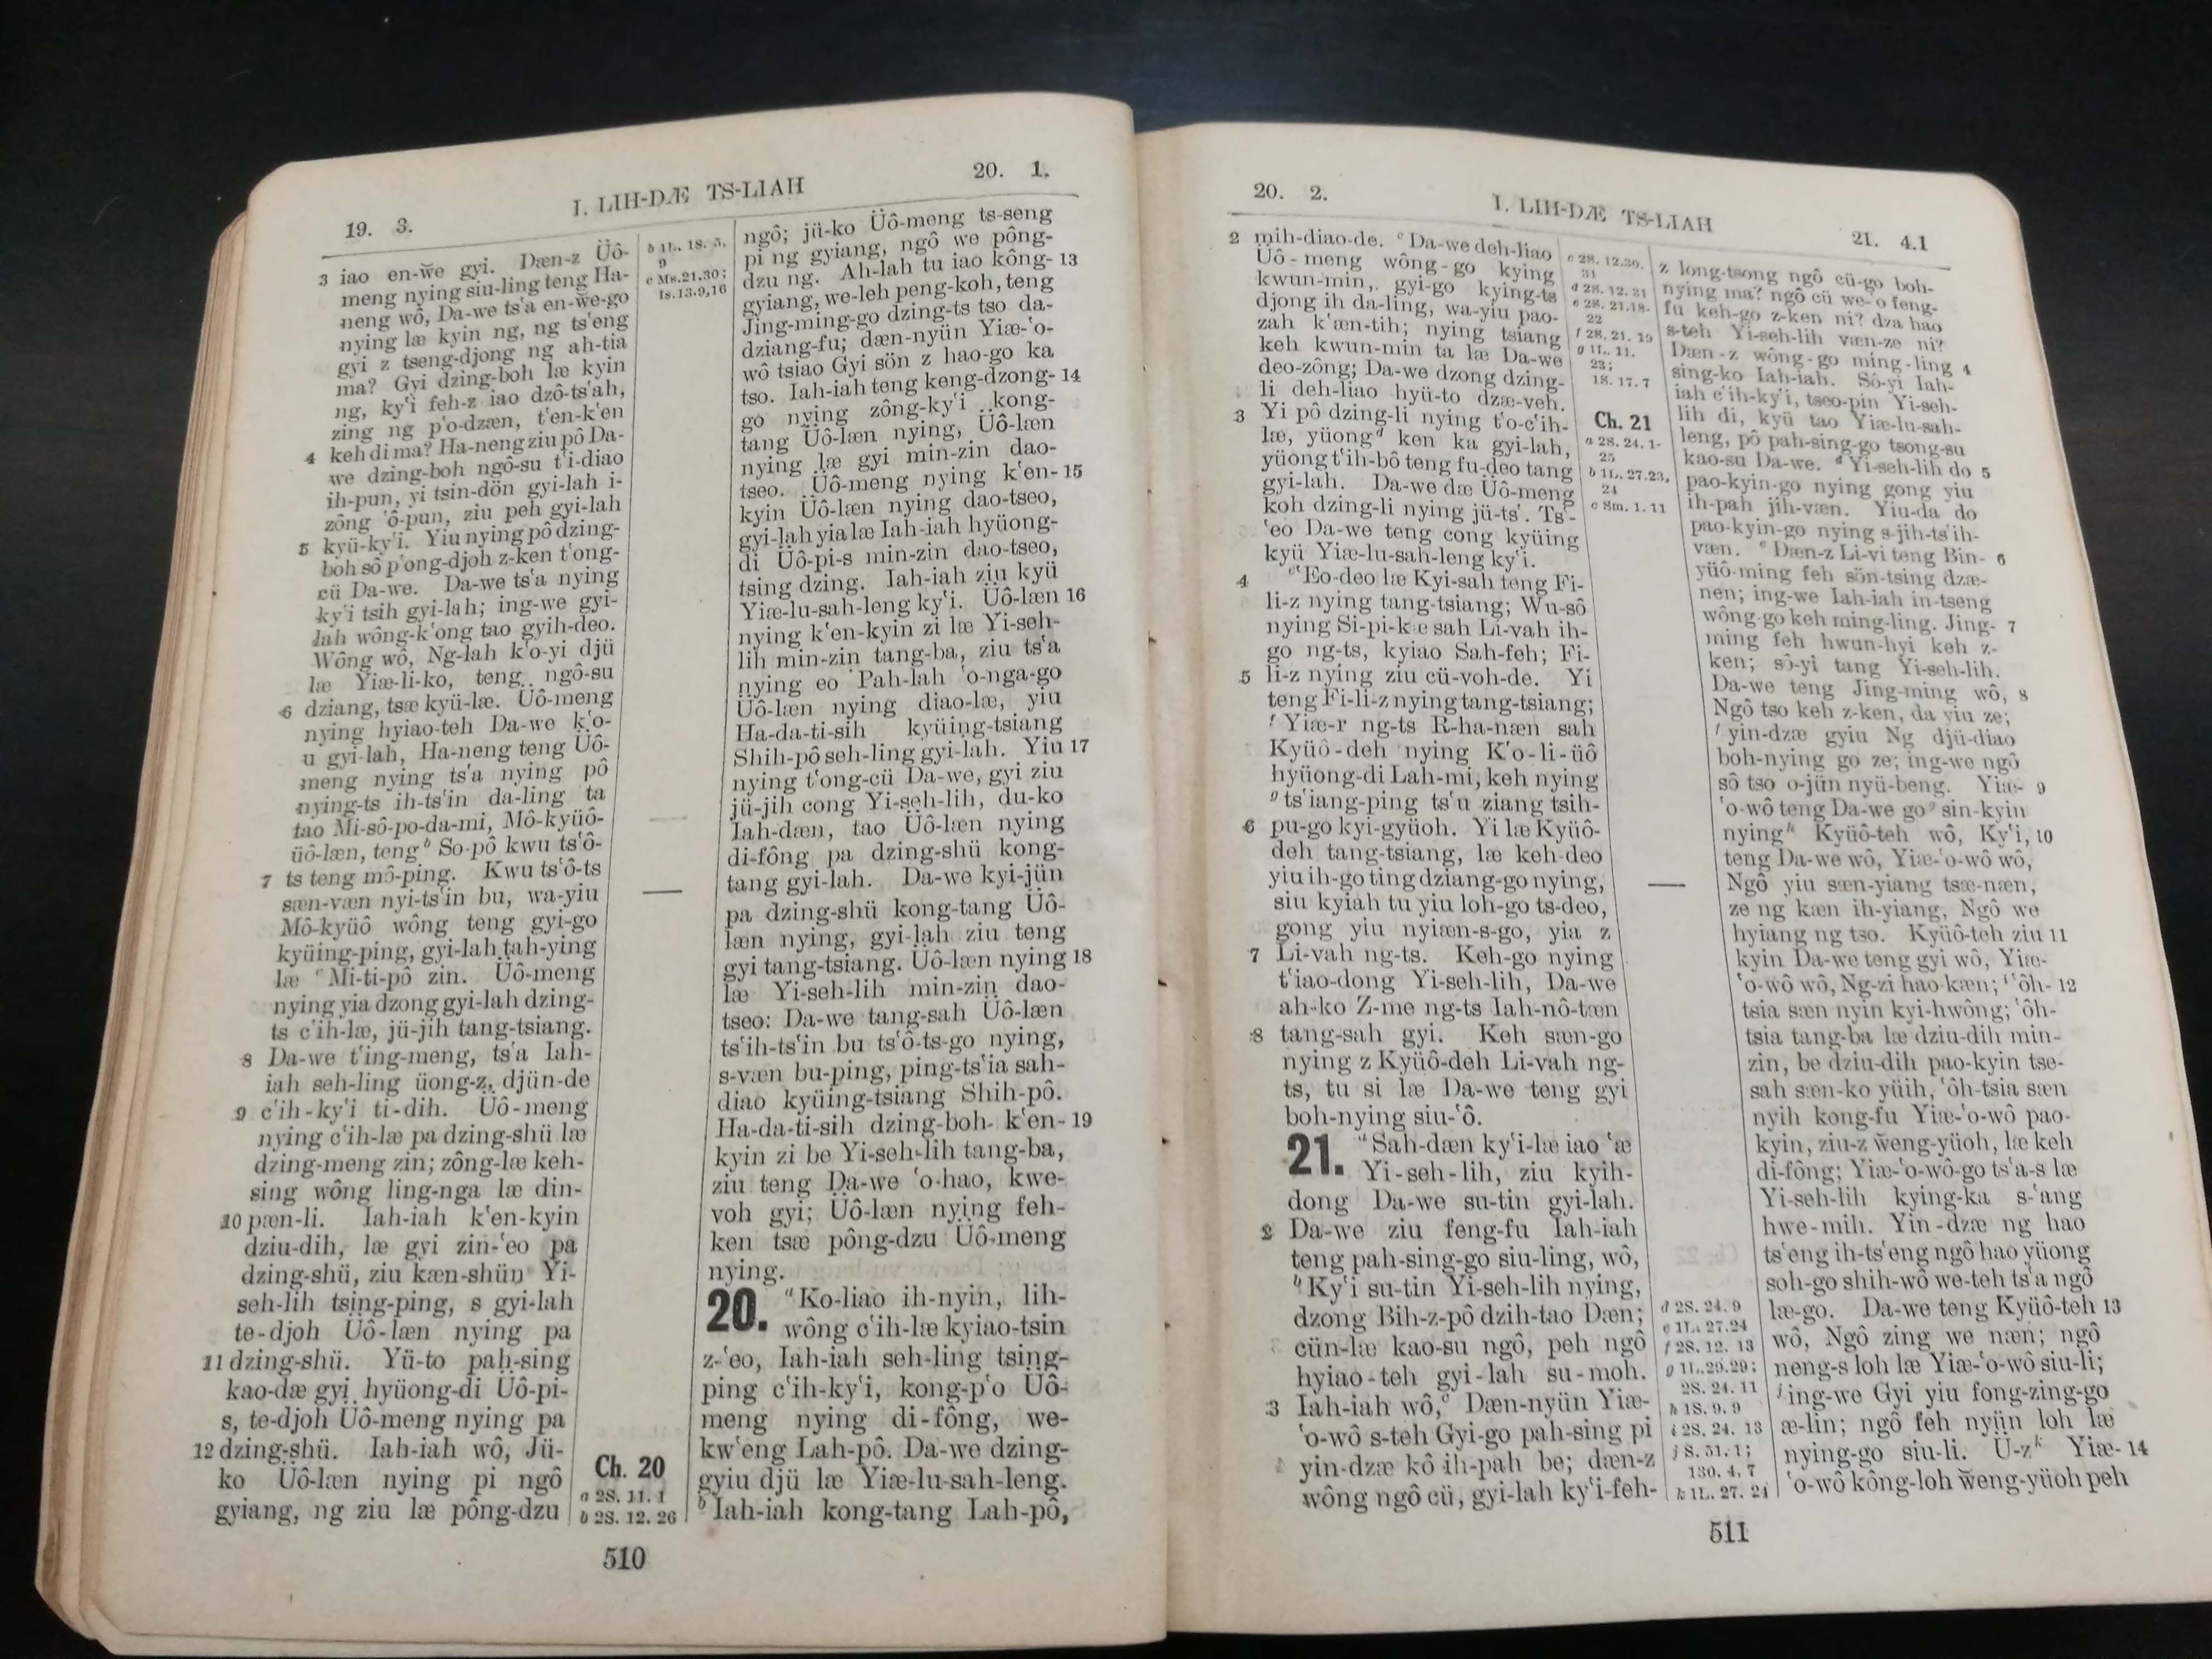 19. 3.
I. LIH-DÆ TS-LIAH
20. 1.
3 iao en-w̆e gyi. Dæn-z Üô-
meng nying siu-ling teng Ha-
neng wô, Da-we ts‘a en-w̆e-go
nying læ kyin ng, ng ts‘eng
gyi z tseng-djong ng ah-tia
ma? Gyi dzing-boh læ kyin
ng, ky‘i feh-z iao dzô-ts‘ah,
zing ng p‘o-dzæn, t‘en-k‘en
4 keh di ma? Ha-neng ziu pô Da-
we dzing-boh ngô-su t‘i-diao
ih-pun, yi tsin-dön gyi-lah i-
zông ‘ô-pun, ziu peh gyi-lah
5 kyü-ky‘i. Yiu nying pô dzing-
boh sô p‘ong-djoh z-ken t‘ong-
cü Da-we. Da-we ts‘a nying
ky‘i tsih gyi-lah; ing-we gyi-
lah wông-k‘ong tao gyih-deo.
Wông wô, Ng-lah k‘o-yi djü
læ Yiæ-li-ko, teng ngô-su
6 dziang, tsæ kyü-læ. Üô-meng
nying hyiao-teh Da-we k‘o-
u gyi-lah, Ha-neng teng Üô-
meng nying ts‘a nying pô
nying-ts ih-ts‘in da-ling ta
tao Mi-sô-po-da-mi, Mô-kyüô-
üô-læn, teng b So-pô kwu ts‘ô-
7 ts teng mô-ping. Kwu ts‘ô-ts
sæn-væn nyi-ts‘in bu, wa-yiu
Mô-kyüô wông teng gyi-go
kyüing-ping, gyi-lah tah-ying
læ c Mi-ti-pô zin. Üô-meng
nying yia dzong gyi-lah dzing-
ts c‘ih-læ, jü-jih tang-tsiang.
8 Da-we t‘ing-meng, ts‘a Iah-
iah seh-ling üong-z, djün-de
9 c‘ih-ky‘i ti-dih. Üô-meng
nying c‘ih-læ pa dzing-shü læ
dzing-meng zin; zông-læ keh-
sing wông ling-nga læ din-
10 pæn-li. Iah-iah k‘en-kyin
dziu-dih, læ gyi zin-‘eo pa
dzing-shü, ziu kæn-shün Yi-
seh-lih tsing-ping, s gyi-lah
te-djoh Üô-læn nying pa
11 dzing-shü. Yü-to pah-sing
kao-dæ gyi hyüong-di Üô-pi-
s, te-djoh Üô-meng nying pa
12 dzing-shü. Iah-iah wô, Jü-
ko Üô-læn nying pi ngô
gyiang, ng ziu læ pông-dzu
b 1L. 18. 5,
9
c Ms.21.30;
Is.13.9,16
Ch. 20
a 2S. 11. 1
b 2S. 12. 26
ngô; jü-ko Üô-meng ts-seng
pi ng gyiang, ngô we pông-
dzu ng. Ah-lah tu iao kông- 13
gyiang, we-leh peng-koh, teng
Jing-ming-go dzing-ts tso da-
dziang-fu; dæn-nyün Yiæ-‘o-
wô tsiao Gyi sön z hao-go ka
tso. Iah-iah teng keng-dzong- 14
go nying zông-ky‘i kong-
tang Üô-læn nying, Üô-læn
nying læ gyi min-zin dao-
tseo. Üô-meng nying k‘en- 15
kyin Üô-læn nying dao-tseo,
gyi-lah yia læ Iah-iah hyüong-
di Üô-pi-s min-zin dao-tseo,
tsing dzing. Iah-iah ziu kyü
Yiæ-lu-sah-leng ky‘i. Üô-læn 16
nying k‘en-kyin zi læ Yi-seh-
lih min-zin tang-ba, ziu ts‘a
nying eo Pah-lah ‘o-nga-go
Üô-læn nying diao-læ, yiu
Ha-da-ti-sih kyüing-tsiang
Shih-pô seh-ling gyi-lah. Yiu 17
nying t‘ong-cü Da-we, gyi ziu
jü-jih cong Yi-seh-lih, du-ko
Iah-dæn, tao Üô-læn nying
di-fông pa dzing-shü kong-
tang gyi-lah. Da-we kyi-jün
pa dzing-shü kong-tang Üô-
læn nying, gyi-lah ziu teng
gyi tang-tsiang. Üô-læn nying 18
læ Yi-seh-lih min-zin dao-
tseo: Da-we tang-sah Üô-læn
ts‘ih-ts‘in bu ts‘ô-ts-go nying,
s-væn bu-ping, ping-ts‘ia sah-
diao kyüing-tsiang Shih-pô.
Ha-da-ti-sih dzing-boh k‘en- 19
kyin zi be Yi-seh-lih tang-ba,
ziu teng Da-we ‘o-hao, kwe-
voh gyi; Üô-læn nying feh-
ken tsæ pông-dzu Üô-meng
nying.
20. a Ko-liao ih-nyin, lih-
wông c‘ih-læ kyiao-tsin
z-‘eo, Iah-iah seh-ling tsing-
ping c‘ih-ky‘i, kong-p‘o Üô-
meng nying di-fông, we-
kw‘eng Lah-pô. Da-we dzing-
gyiu djü læ Yiæ-lu-sah-leng.
b Iah-iah kong-tang Lah-pô,
510
20. 2.
I. LIH-DÆ TS-LIAH
21. 4.1
2 mih-diao-de. c Da-we deh-liao
Üô-meng wông-go kying
kwun-min, gyi-go kying-ts
djong ih da-ling, wa-yiu pao-
zah k‘æn-tih; nying tsiang
keh kwun-min ta læ Da-we
deo-zông; Da-we dzong dzing-
li deh-liao hyü-to dzæ-veh.
3 Yi pô dzing-li nying t‘o-c‘ih-
læ, yüong d ken ka gyi-lah,
yüong t‘ih-bô teng fu-deo tang
gyi-lah. Da-we dæ Üô-meng
koh dzing-li nying jü-ts‘. Ts‘-
‘eo Da-we teng cong kyüing
kyü Yiæ-lu-sah-leng ky‘i.
4 e ‘Eo-deo læ Kyi-sah teng Fi-
li-z nying tang-tsiang; Wu-sô
nying Si-pi-kæ sah Li-vah ih-
go ng-ts, kyiao Sah-feh; Fi-
5 li-z nying ziu cü-voh-de. Yi
teng Fi-li-z nying tang-tsiang;
f Yiæ-r ng-ts R-ha-næn sah
Kyüô-deh nying K‘o-li-üô
hyüong-di Lah-mi, keh nying
g ts‘iang-ping ts‘u ziang tsih-
6 pu-go kyi-gyüoh. Yi læ Kyüô-
deh tang-tsiang, læ keh-deo
yiu ih-go ting dziang-go nying,
siu kyiah tu yiu loh-go ts-deo,
gong yiu nyiæn-s-go, yia z
7 Li-vah ng-ts. Keh-go nying
t‘iao-dong Yi-seh-lih, Da-we
ah-ko Z-me ng-ts Iah-nô-tæn
8 tang-sah gyi. Keh sæn-go
nying z Kyüô-deh Li-vah ng-
ts, tu si læ Da-we teng gyi
boh-nying siu-‘ô.
21. a Sah-dæn ky‘i-læ iao ‘æ
Yi-seh-lih, ziu kyih-
dong Da-we su-tin gyi-lah.
2 Da-we ziu feng-fu Iah-iah
teng pah-sing-go siu-ling, wô,
b Ky‘i su-tin Yi-seh-lih nying,
dzong Bih-z-pô dzih-tao Dæn;
cün-læ kao-su ngô, peh ngô
hyiao-teh gyi-lah su-moh.
3 Iah-iah wô, c Dæn-nyün Yiæ-
‘o-wô s-teh Gyi-go pah-sing pi
yin-dzæ kô ih-pah be; dæn-z
wông ngô cü, gyi-lah ky‘i-feh-
c 2S. 12.30,
31
d 2S. 12. 31
e 2S. 21.18-
22
f 2S. 21. 19
g 1L. 11.
23;
18. 17. 7
Ch. 21
a 2S. 24. 1-
25
b 1L.27.23,
24
c Sm. 1. 11
d 2S. 24. 9
e 1L. 27.24
f 2S. 12. 13
g 1L.29.29;
2S. 24. 11
h 1S. 9. 9
i 2S. 24. 13
j S. 51. 1;
130. 4, 7
k 1L. 27. 24
z long-tsong ngô cü-go boh-
nying ma? ngô cü we-o feng-
fu keh-go z-ken ni? dza hao
s-teh Yi-seh-lih væn-ze ni?
Dæn-z wông-go ming-ling 4
sing-ko Iah-iah. Sô-yi Iah-
iah c‘ih-ky‘i, tseo-pin Yi-seh-
lih di, kyü tao Yiæ-lu-sah-
leng, pô pah-sing-go tsong-su
kao-su Da-we. d Yi-seh-lih do 5
pao-kyin-go nying gong yiu
ih-pah jih-væn. Yiu-da do
pao-kyin-go nying s-jih-ts‘ih-
væn. e Dæn-z Li-vi teng Bin- 6
yüô-ming feh sön-tsing dzæ-
nen; ing-we Iah-iah in-tseng
wông-go keh ming-ling. Jing- 7
ming feh hwun-hyi keh z-
ken; sô-yi tang Yi-seh-lih.
Da-we teng Jing-ming wô, 8
Ngô tso keh z-ken, da yiu ze;
f yin-dzæ gyiu Ng djü-diao
boh-nying go ze; ing-we ngô
sô tso o-jün nyü-beng. Yiæ- 9
‘o-wô teng Da-we go g sin-kyin
nying h Kyüô-teh wô, Ky‘i, 10
teng Da-we wô, Yiæ-‘o-wô wô,
Ngô yiu sæn-yiang tsæ-næn,
ze ng kæn ih-yiang, Ngô we
hyiang ng tso. Kyüô-teh ziu 11
kyin Da-we teng gyi wô, Yiæ-
‘o-wô wô, Ng-zi hao kæn; i ‘ôh- 12
tsia sæn nyin kyi-hwông; ‘ôh-
tsia tang-ba læ dziu-dih min-
zin, be dziu-dih pao-kyin tse-
sah sæn-ko yüih, ‘ôh-tsia sæn
nyih kong-fu Yiæ-‘o-wô pao-
kyin, ziu-z w̆eng-yüoh, læ keh
di-fông; Yiæ-‘o-wô-go ts‘a-s læ
Yi-seh-lih kying-ka s-‘ang
hwe-mih. Yin-dzæ ng hao
ts‘eng ih-ts‘eng ngô hao yüong
soh-go shih-wô we-teh ts‘a ngô
læ-go. Da-we teng Kyüô-teh 13
wô, Ngô zing we næn; ngô
neng-s loh læ Yiæ-‘o-wô siu-li;
j ing-we Gyi yiu fong-zing-go
æ-lin; ngô feh nyün loh læ
nying-go siu-li. Ü-z k Yiæ- 14
‘o-wô kông-loh w̆eng-yüoh peh
511